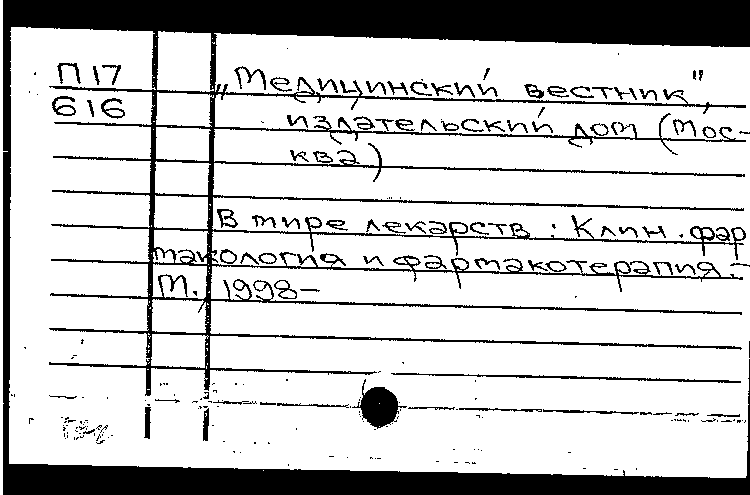 П 17
616
„Медицинский вестник",
издательский дом (Мос-
ква)
В мире лекарств : Клин. фар
макология и фармакотерапия. -
М., 1998-